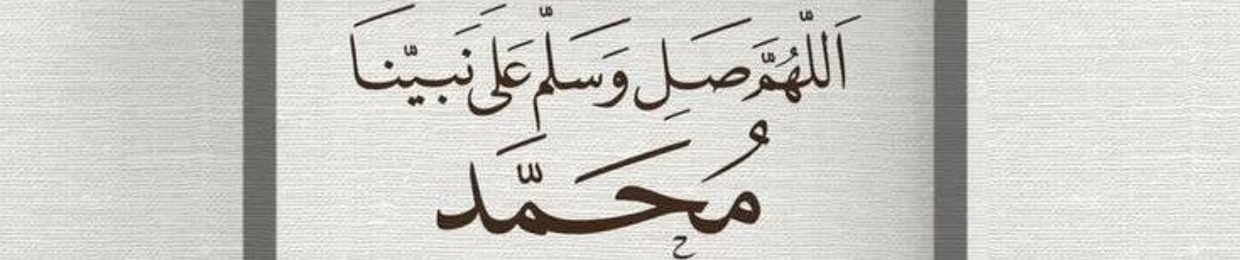 اَللّٰهُمَّ صَلِ وَسَلّمْ عَلَى نَبيّنَا
مُحَمَّد